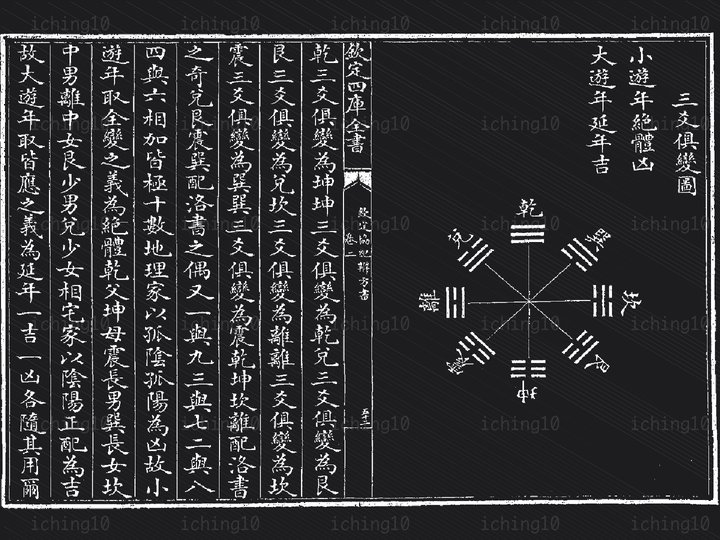 三爻俱變圖
小遊年絕體凶
大遊年延年吉
乾
巽
坎
艮
坤
震
離
兌
欽定四庫全書
欽定協紀辨方書
卷二
乾三爻俱變為坤坤三爻俱變為乾兌三爻俱變為艮
艮三爻俱變為兌坎三爻俱變為離離三爻俱變為坎
震三爻俱變為巽巽三爻俱變為震乾坤坎離配洛書
之奇兌艮震巽配洛書之偶又一與九三與七二與八
四與六相加皆極十數地理家以孤陰孤陽為凶故小
遊年取全變之義為絕體乾父坤母震長男巽長女坎
中男離中女艮少男兌少女相宅家以陰陽正配為吉
故大遊年取皆應之義為延年一吉一凶各隨其用爾
iching10